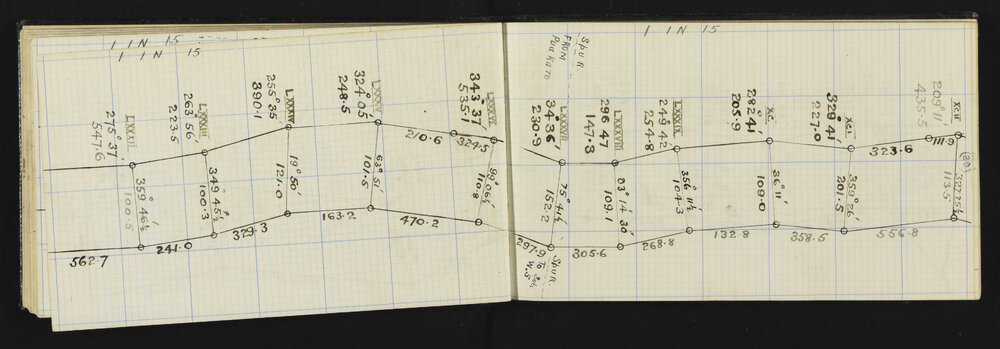 1 IN 15
1 IN 15
LXXXII
275° 37'
547.6
LXXXIII
263° 56'
223.5
255° 35'
390.1
LXXXV
324° 05'
248.5
LXXXVI
343° 37'
535.1
210.6
324.5
359 46½
100.5
349° 45½'
100.3
19° 50'
121.0
63° 51'
101.5
80° 06½'
110.8
562.7
241.0
329.3
163.2
470.2
297.9
Spur
FROM
1 IN 15
LXXXVII
34° 36'
230.9
LXXXVIII
296 47
147.3
LXXXIX
249 42
254.8
XC
282 41'
205.9
XCI
329° 41'
227.0
XCII
209° 11'
435.5
323.6
111.9
75° 41½'
152.2
83° 14' 30"
109.1
356° 11½'
104.3
36° 11'
109.0
359° 26'
201.5
327 25½
113.5
Spur
To
305.6
268.8
132.8
358.5
556.8